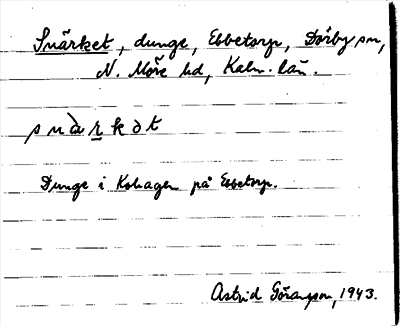 Snärket, dunge, Ebbetorp, Dörby sn,
N. Möre hd, Kalm. län.
snàrkət
Dunge i Kohagen på Ebbetorp.
Astrid Göransson, 1943.